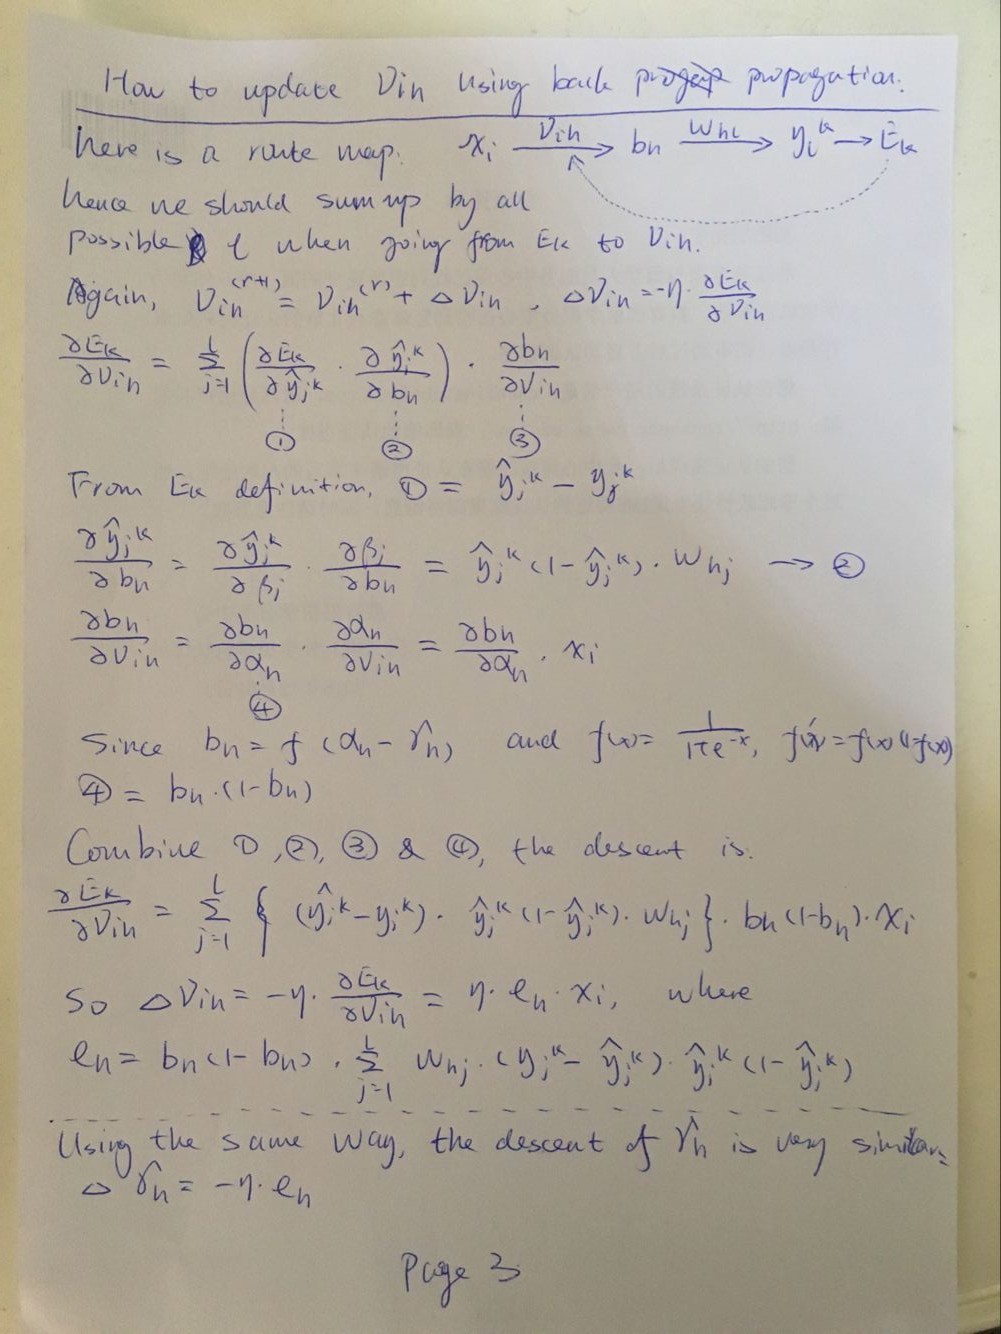 How to update Vih using back propagation.
here is a route map. xi —Vih→ bh —Whl→ yl^k → Ek
hence we should sum up by all
possible l when going from Ek to Vih.
Again, Vih^(r+1) = Vih^(r) + △Vih , △Vih = -η · ∂Ek/∂Vih
∂Ek/∂Vih = Σ_{j=1}^{l} (∂Ek/∂ŷj^k · ∂ŷj^k/∂bh) · ∂bh/∂Vih
① ② ③
From Ek definition, ① = ŷj^k - yj^k
∂ŷj^k/∂bh = ∂ŷj^k/∂βj · ∂βj/∂bh = ŷj^k (1-ŷj^k) · Whj → ②
∂bh/∂Vih = ∂bh/∂αh · ∂αh/∂Vih = ∂bh/∂αh · xi
④
Since bh = f (αh - γh), and f(x) = 1/(1+e^-x), f'(x) = f(x)(1-f(x))
④ = bh · (1-bh)
Combine ①, ②, ③ & ④, the descent is:
∂Ek/∂Vih = Σ_{j=1}^{l} { (ŷj^k - yj^k) · ŷj^k (1-ŷj^k) · Whj } · bh (1-bh) · xi
So △Vih = -η · ∂Ek/∂Vih = η · eh · xi, where
eh = bh (1-bh) · Σ_{j=1}^{l} Whj · (yj^k - ŷj^k) · ŷj^k (1-ŷj^k)
Using the same way, the descent of γh is very similar:
△γh = -η · eh
Page 3